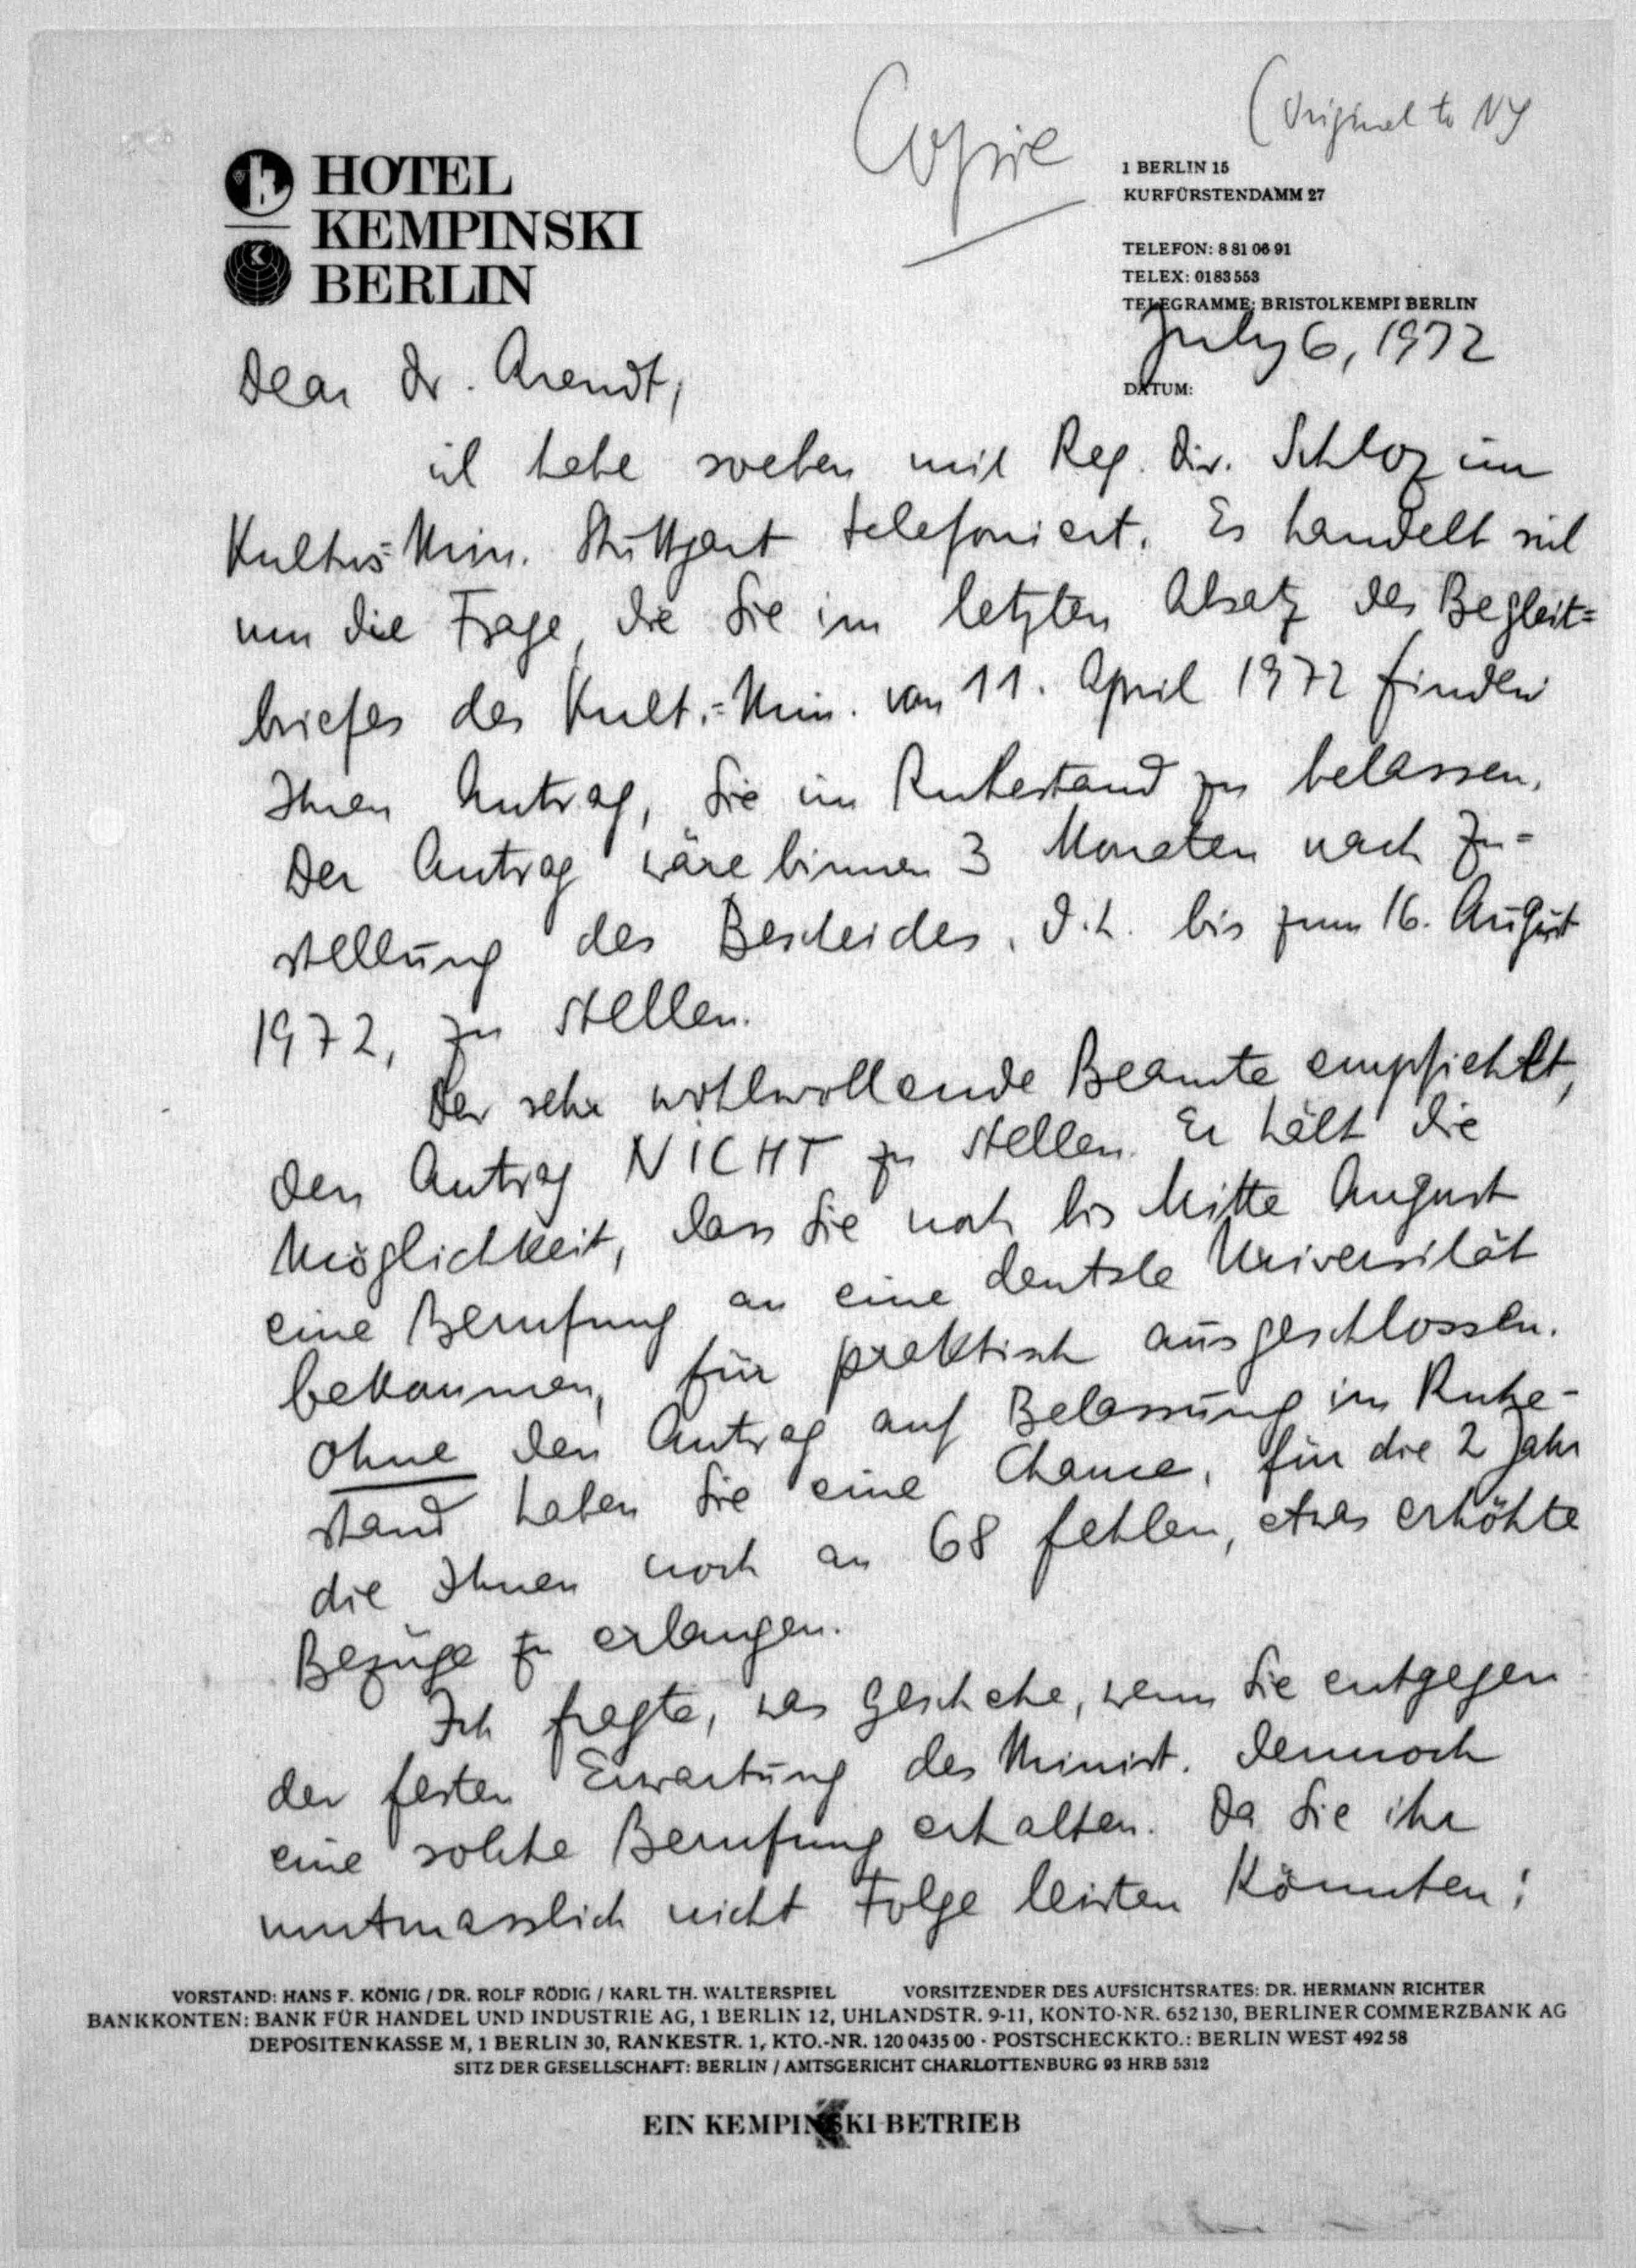 Copie
(Original to NY
HOTEL
KEMPINSKI
BERLIN
1 BERLIN 15
KURFÜRSTENDAMM 27
TELEFON: 8 81 06 91
TELEX: 0183 553
TELEGRAMME: BRISTOLKEMPI BERLIN
July 6, 1972
DATUM:
Dear Dr. Arendt,
ich habe soeben mit Reg. Dir. Schloz im
Kultus-Min. Stuttgart telefoniert. Es handelt sich
um die Frage, die Sie im letzten Absatz des Begleit=
briefes des Kult.=Min. von 11. April 1972 finden
Ihren Antrag, Sie im Ruhestand zu belassen.
Der Antrag wäre binnen 3 Monaten nach Zu=
stellung des Bescheides, d.h. bis zum 16. August
1972, zu stellen.
Der sehr wohlwollende Beamte empfiehlt,
den Antrag NICHT zu stellen. Er hält die
Möglichkeit, dass Sie noch bis Mitte August
eine Berufung an eine deutsche Universität
bekommen, für praktisch ausgeschlossen.
Ohne den Antrag auf Belassung im Ruhe-
stand haben Sie eine Chance, für die 2 Jahr
die Ihnen noch an 68 fehlen, etwas erhöhte
Bezüge zu erlangen.
Ich fragte, was geschehe, wenn Sie entgegen
der festen Erwartung des Minist. dennoch
eine solche Berufung erhalten. Da Sie ihr
mutmasslich nicht Folge leisten könnten:
VORSTAND: HANS F. KÖNIG / DR. ROLF RÖDIG / KARL TH. WALTERSPIEL VORSITZENDER DES AUFSICHTSRATES: DR. HERMANN RICHTER
BANKKONTEN: BANK FÜR HANDEL UND INDUSTRIE AG, 1 BERLIN 12, UHLANDSTR. 9-11, KONTO-NR. 652 130, BERLINER COMMERZBANK AG
DEPOSITENKASSE M, 1 BERLIN 30, RANKESTR. 1, KTO.-NR. 120 0435 00 · POSTSCHECKKTO.: BERLIN WEST 492 58
SITZ DER GESELLSCHAFT: BERLIN / AMTSGERICHT CHARLOTTENBURG 93 HRB 5312
EIN KEMPINSKI-BETRIEB